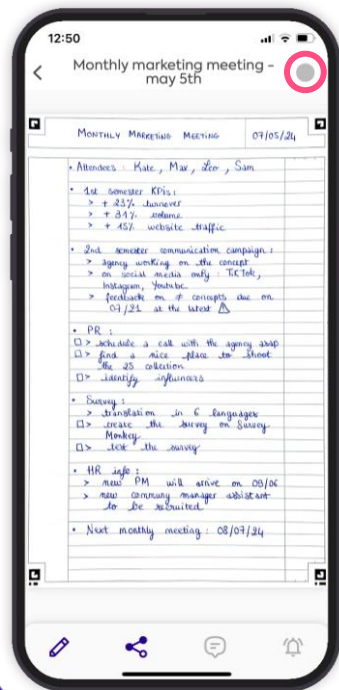 12:50
Monthly marketing meeting -
may 5th
MONTHLY MARKETING MEETING 07/05/24
• Attendees : Kate, Max, Leo, Sam
• 1st semester KPIs :
> + 23% turnover
> + 31% volume
> + 45% website traffic
• 2nd semester communication campaign :
> agency working on the concept
> on social media only : TikTok,
Instagram, Youtube
> feedback on ≠ concepts due on
07/21 at the latest
• PR :
> schedule a call with the agency asap
> find a nice place to shoot
the 25 collection
> identify influencers
• Survey :
> translation in 6 languages
> create the survey on Survey
Monkey
> test the survey
• HR info :
> new PM will arrive on 09/06
> new communy manager assistant
to be recruited
• Next monthly meeting : 08/07/24